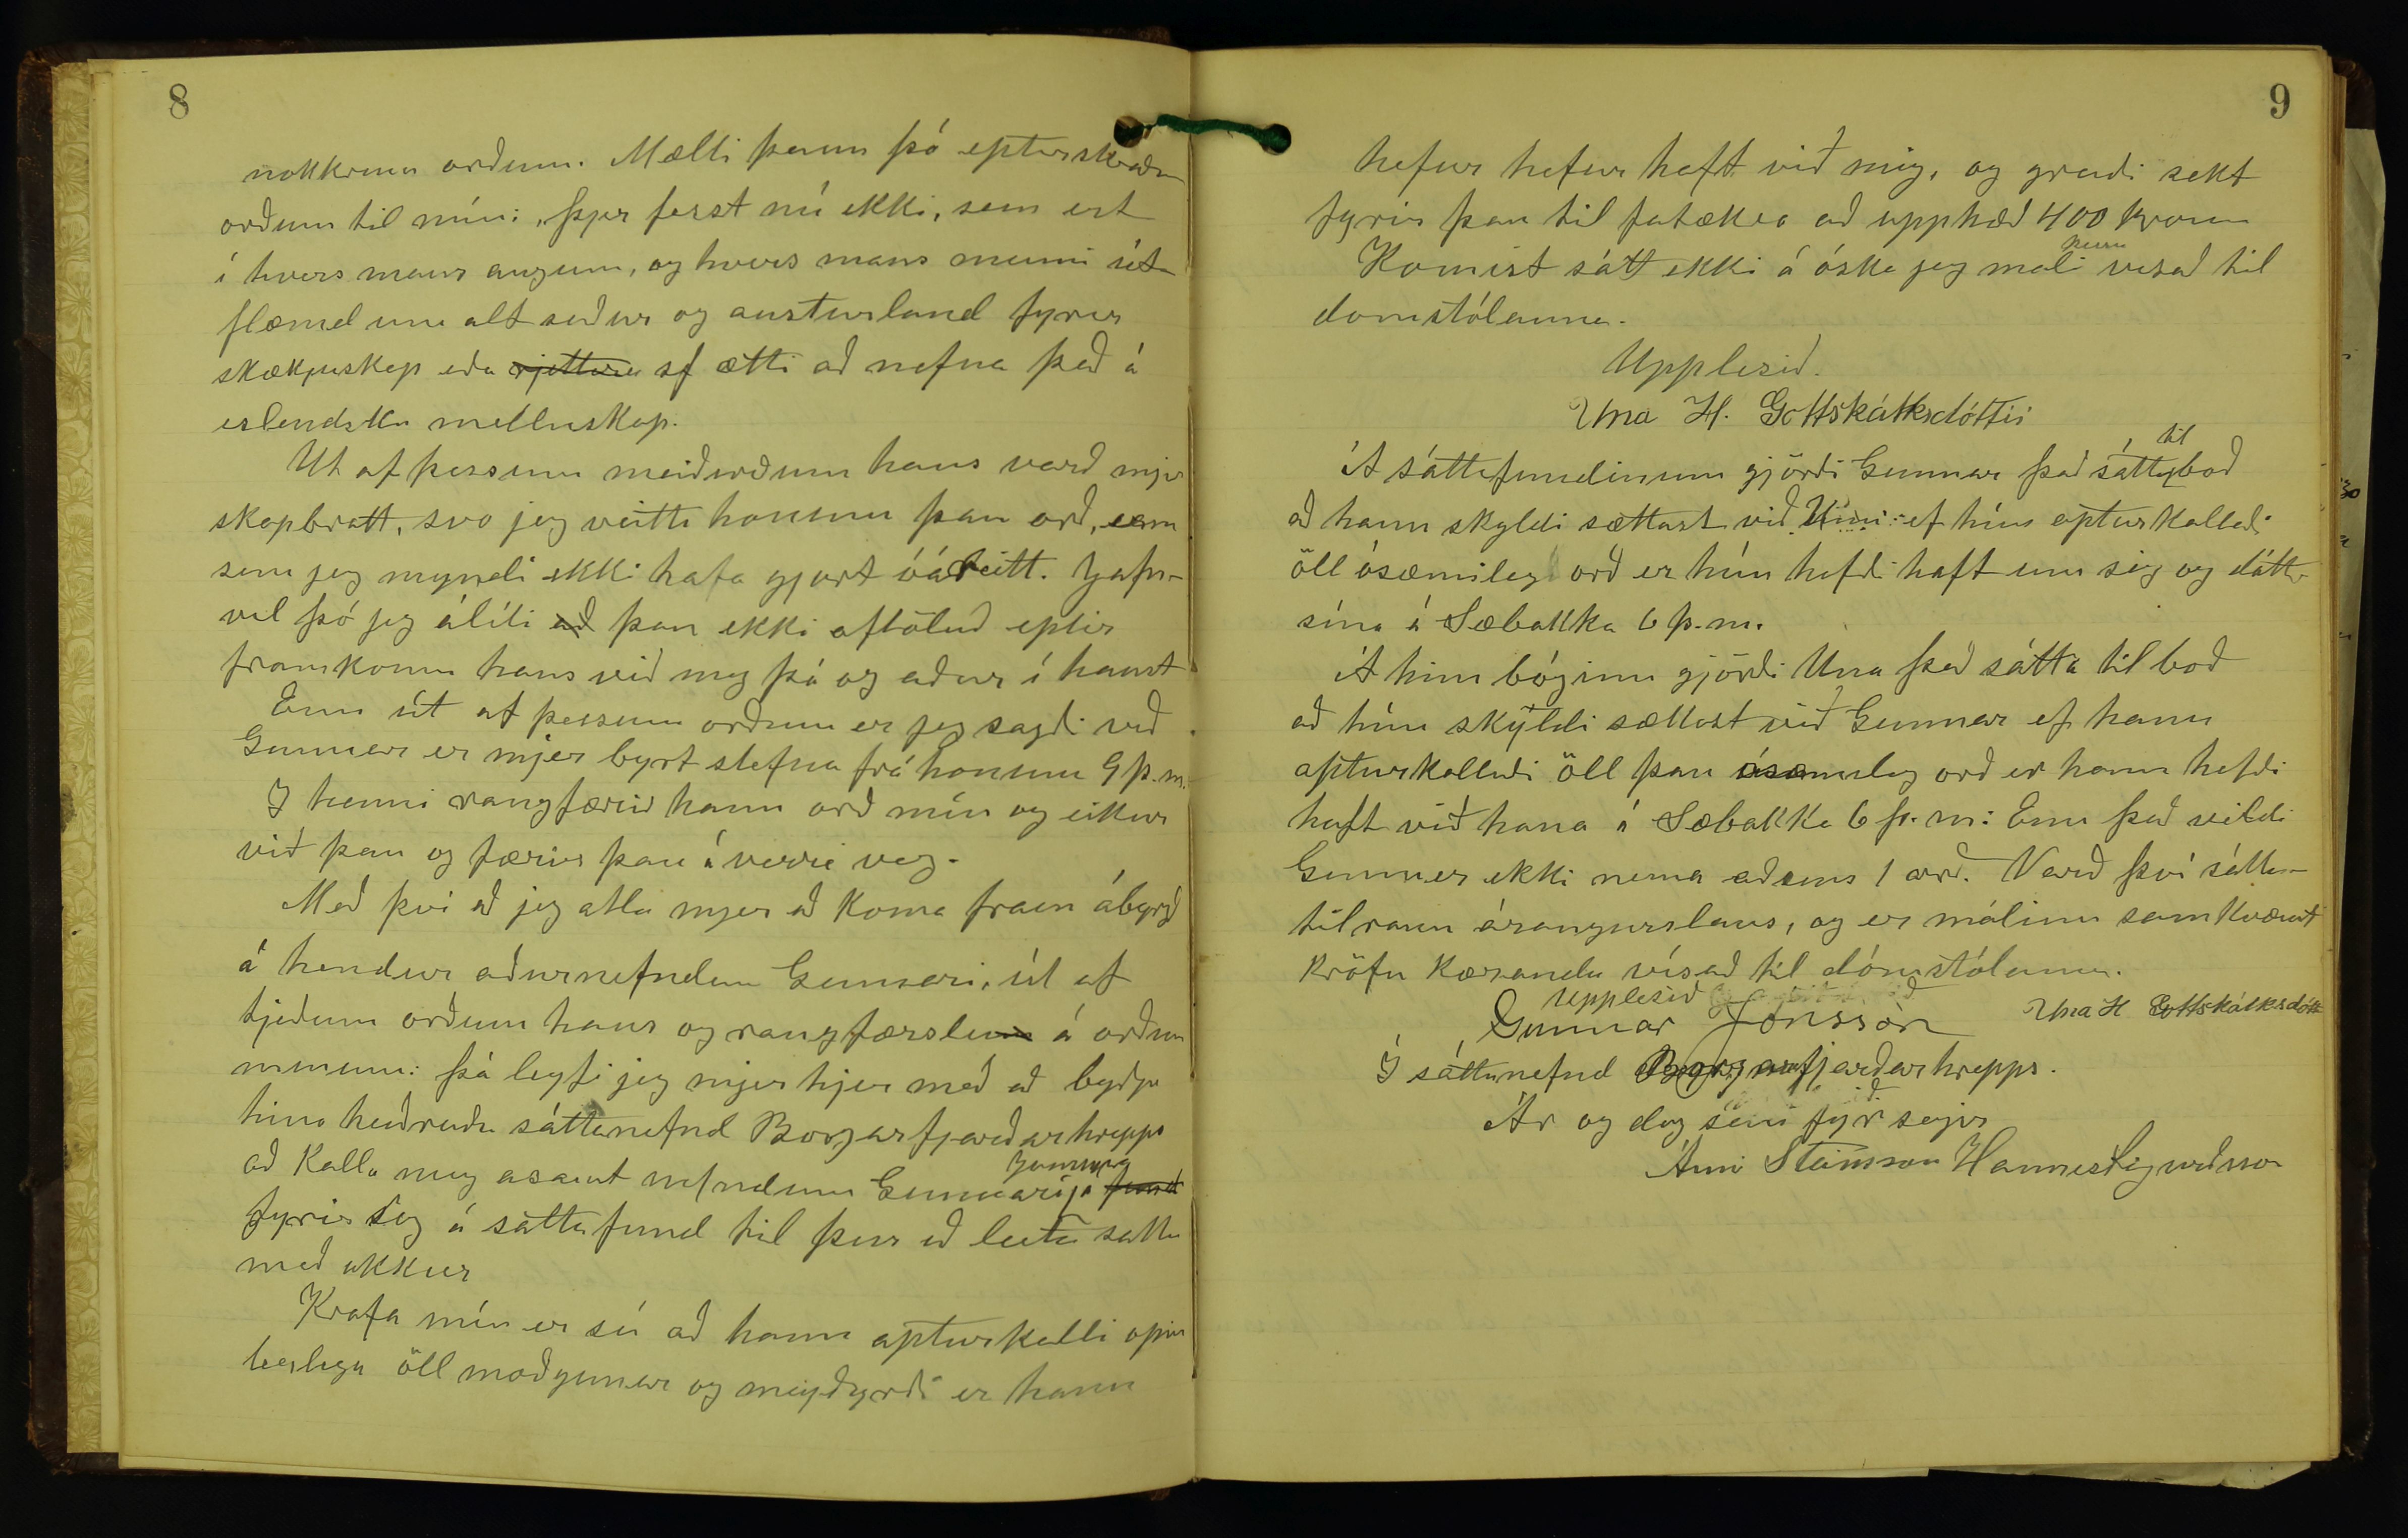 8
nokkrum orðum. Mælti hann þó eptirskráðum
orðum til mín: „Þjer ferst nú ekki, sem ert
í hvers mans augum, og hvers mans munni út
flæmd um alt suður og austurland fyrir
skækjuskap eða rjettara sf ætti að nefna það á
eslendsku melluskap.
Út af þessum meiðirðum hans varð mjer
skapbratt, svo jeg veitti honum þau orð, sem
sem jeg myndi ekki hafa gjört óáreitt. Jafn-
vel þó jeg álíti að þau ekki oftöluð eptir
framkomu hans við mig þá og aður í haust
Enn út af þessum orðum er jeg sagði við
Gunnar er mjer byrt stefna frá honum 9 þ.m.
I henni rangfærir hann orð mín og eikur
við þau og færir þau á verri veg.
Með því að jeg atla mjer að koma fram ábyrgð
á hendur aðurnefndum Gunnari, út af
tjeðum orðum hans og rangfærslum á orðum
mínum: þá leyfi jeg mjer hjer með að byðja
hina heiðruðu sáttanefnd Borgarfjarðarhrepps
að kalla mig asamt nefndum Gunnari Jónssyni á fund
fyrir sig á sáttafund til þess að leita sátta
með okkur
Krafa mín er sú að hann apturkalli opin
berlega öll moðgunar og meiðyrði er hann
9
hefur hefur haft við mig, og greiði sekt
fyrir þau til fatækra að upphæð 400 kronur
Komist sátt ekki á óska jeg máli þessu visað til
domstólanna.
Upplesið.
Una H. Gottskálksdóttir
Á sáttafundinum gjörði Gunnar það sáttatilboð
að hann skyldi sættast við Unu: ef hún apturkallaði
öll ósæmileg orð er hún hefði haft um sig og dóttur
sína á Sæbakka 6 þ.m.
Á hinn bóginn gjörði Una það sátta til boð
að hún skyldi sættast við Gunnar ef hann
apturkallaði öll þau ósæmileg orð er hann hefði
haft við hana á Sæbakka 6 þ.m: Enn það vildi
Gunnar ekki nema aðeins 1 orð. Varð því sátta-
tilraun árangurslaus, og er málinu samkvæmt
kröfu kæranda vísað til dómstólanna.
Upplesið
Gunnar Jónsson Una H Gottskálksdótt
Í sáttanefnd Borgarfjarðarhrepps.
Ár og dag sem fyr segir
Árni Steinsson Hannes Sigurðsson